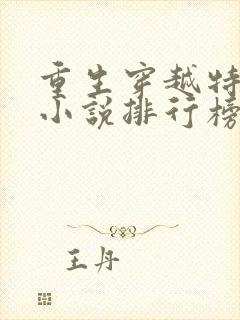 重生穿越特
小说排行榜
王丹